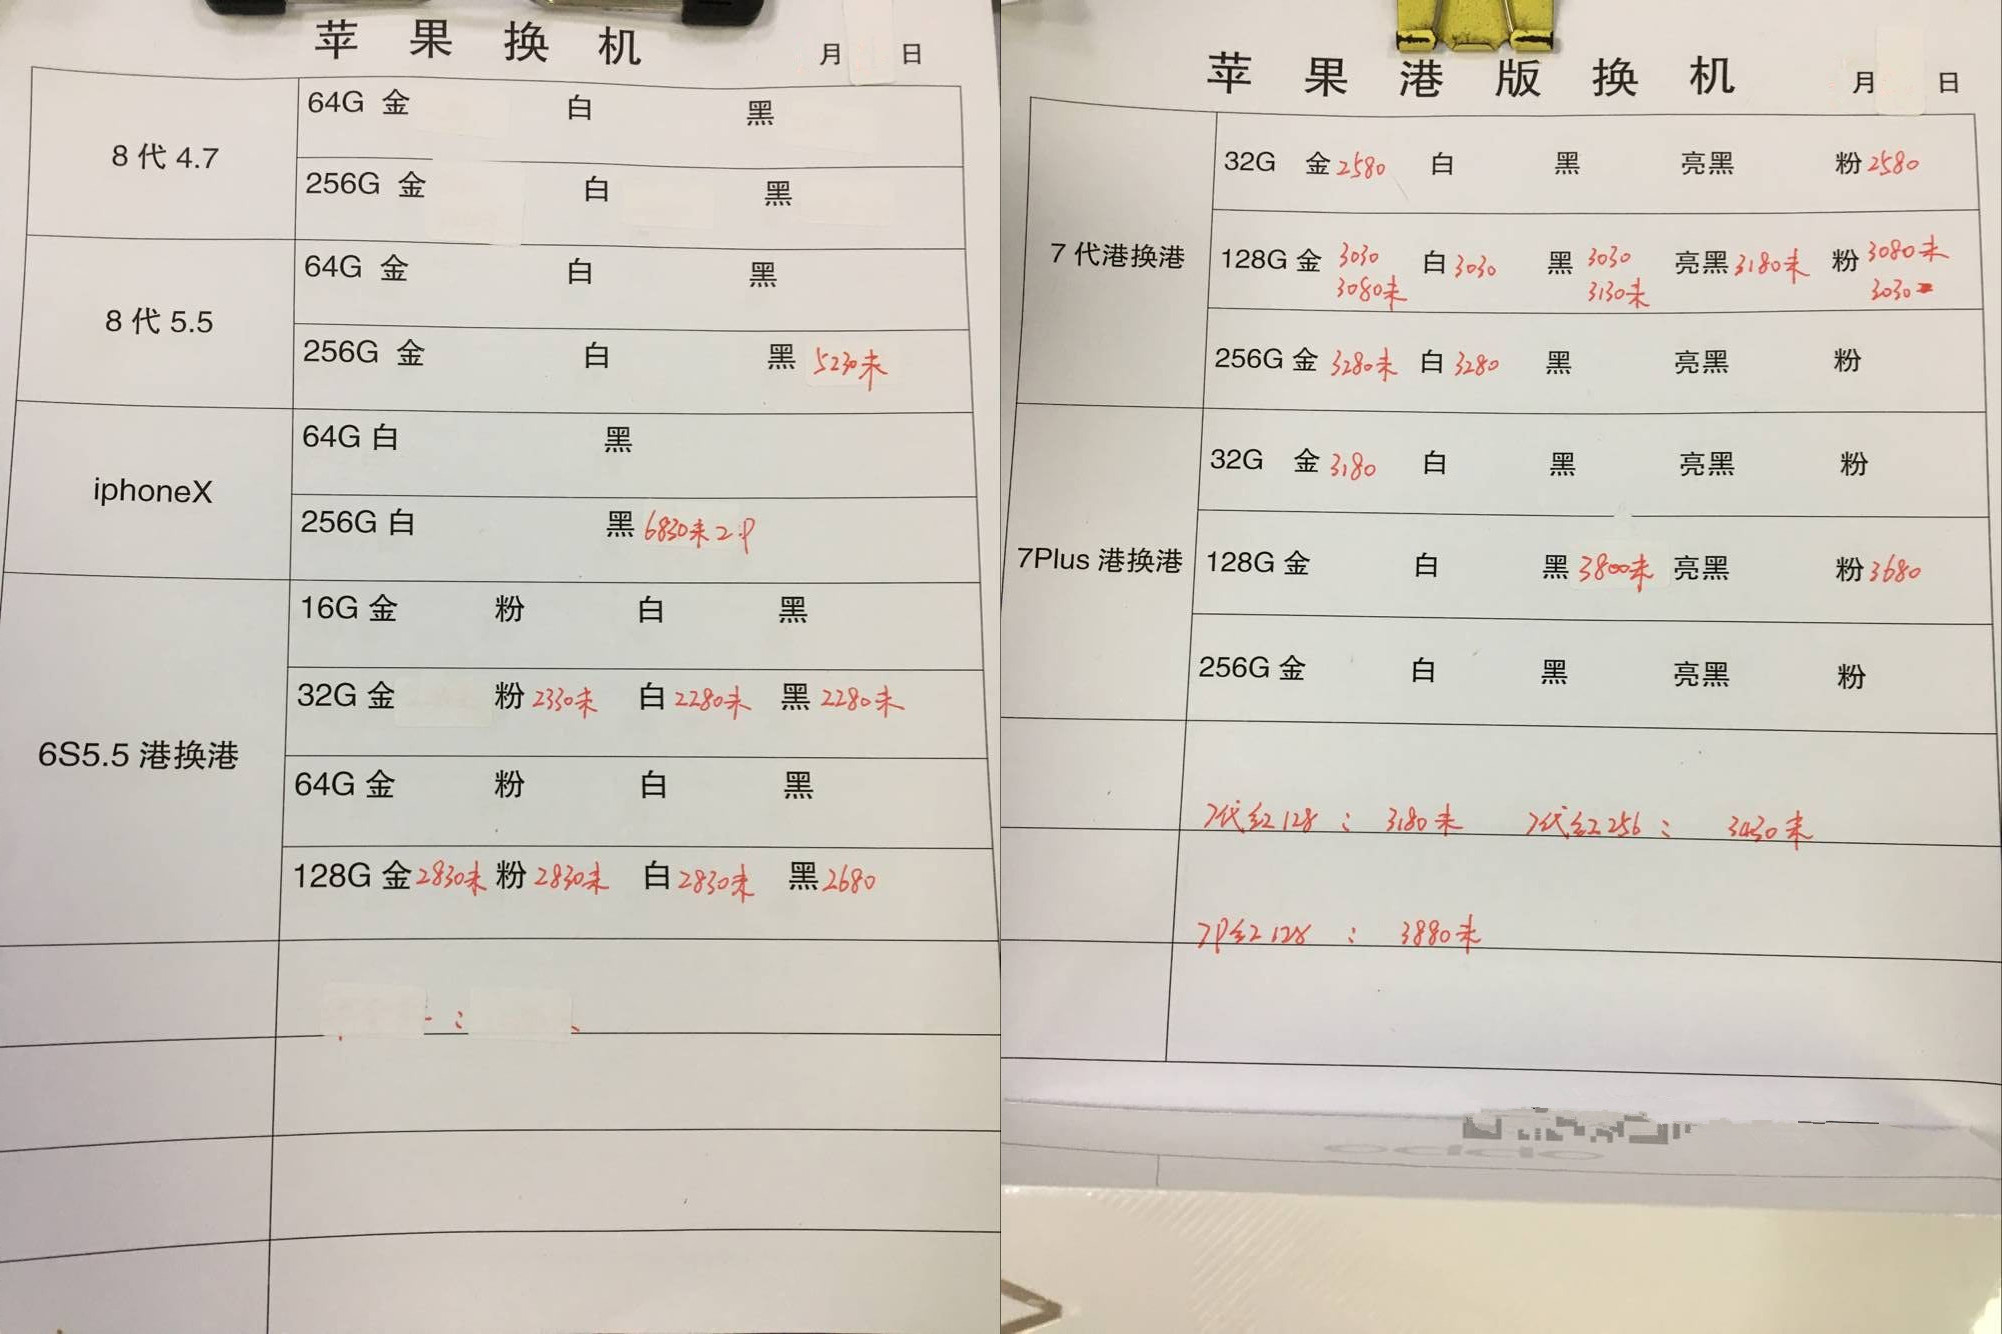 苹果换机 月 日
8代4.7
64G 金 白 黑
256G 金 白 黑
8代5.5
64G 金 白 黑
256G 金 白 黑 5230未
iphoneX
64G 白 黑
256G 白 黑 6830未
6S5.5 港换港
16G 金 粉 白 黑
32G 金 粉 2330未 白 2280未 黑 2280未
64G 金 粉 白 黑
128G 金 2830未 粉 2830未 白 2830未 黑 2680
苹果港版换机 月 日
7代港换港
32G 金 2580 白 黑 亮黑 粉 2580
128G 金 3030 白 3030 黑 3030 亮黑 3180未 粉 3080未
3080未 3130未 3030
256G 金 3280未 白 3280 黑 亮黑 粉
7Plus 港换港
32G 金 3180 白 黑 亮黑 粉
128G 金 白 黑 3800未 亮黑 粉 3680
256G 金 白 黑 亮黑 粉
7代红128 : 3180未 7代红256 : 3430未
7P红128 : 3880未